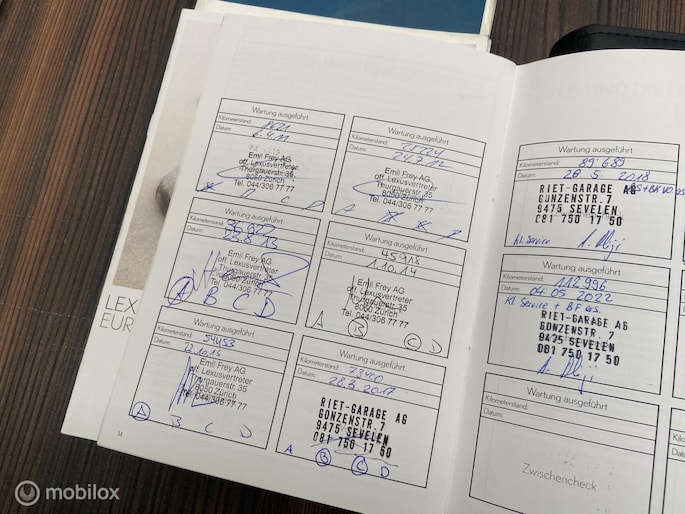 Wartung ausgeführt
Kilometerstand:
Datum: 6.4.11
Emil Frey AG
off. Lexusvertreter
Thurgauerstr. 35
8050 Zürich
Tel. 044/306 77 77
C D
Wartung ausgeführt
Kilometerstand:
Datum: 24.7.12
Emil Frey AG
off. Lexusvertreter
Thurgauerstr. 35
8050 Zürich
Tel. 044/306 77 77
A
Wartung ausgeführt
Kilometerstand:
Datum:
Emil Frey AG
off. Lexusvertreter
Thurgauerstr. 35
8050 Zürich
Tel. 044/306 77 77
A B C D
Wartung ausgeführt
Kilometerstand: 45918
Datum: 1.10.14
Emil Frey AG
off. Lexusvertreter
Thurgauerstr. 35
8050 Zürich
Tel. 044/306 77 77
A B C D
Wartung ausgeführt
Kilometerstand: 54453
Datum:
Emil Frey AG
off. Lexusvertreter
Thurgauerstr. 35
8050 Zürich
Tel. 044/306 77 77
A B C D
Wartung ausgeführt
Kilometerstand: 73400
Datum: 28.8.2017
RIET-GARAGE AG
GONZENSTR. 7
9475 SEVELEN
081 750 17 50
A B C D
14
LEX
EUR
Wartung ausgeführt
Kilometerstand: 89'689
Datum: 28 5 2018
RIET-GARAGE AG
GONZENSTR. 7
9475 SEVELEN
081 750 17 50
Kl. Service
Wartung ausgeführt
Kilometerstand: 112'996
Datum: 04.05 2022
Kl Service + BF ers.
RIET-GARAGE AG
GONZENSTR. 7
9475 SEVELEN
081 750 17 50
Wartung ausgeführt
Kilometerstand:
Datum:
Zwischencheck
mobilox